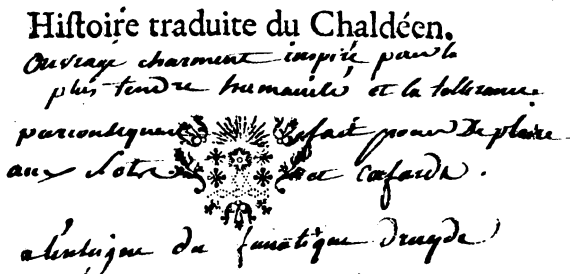 Hiſtoire traduite du Chaldéen.
Ouvrage charment inspiré par la
plus tendre humanité, et la tollerance
parconsequent fait pour Deplaire
aux Sots et cafards.
du fanatique Druyde